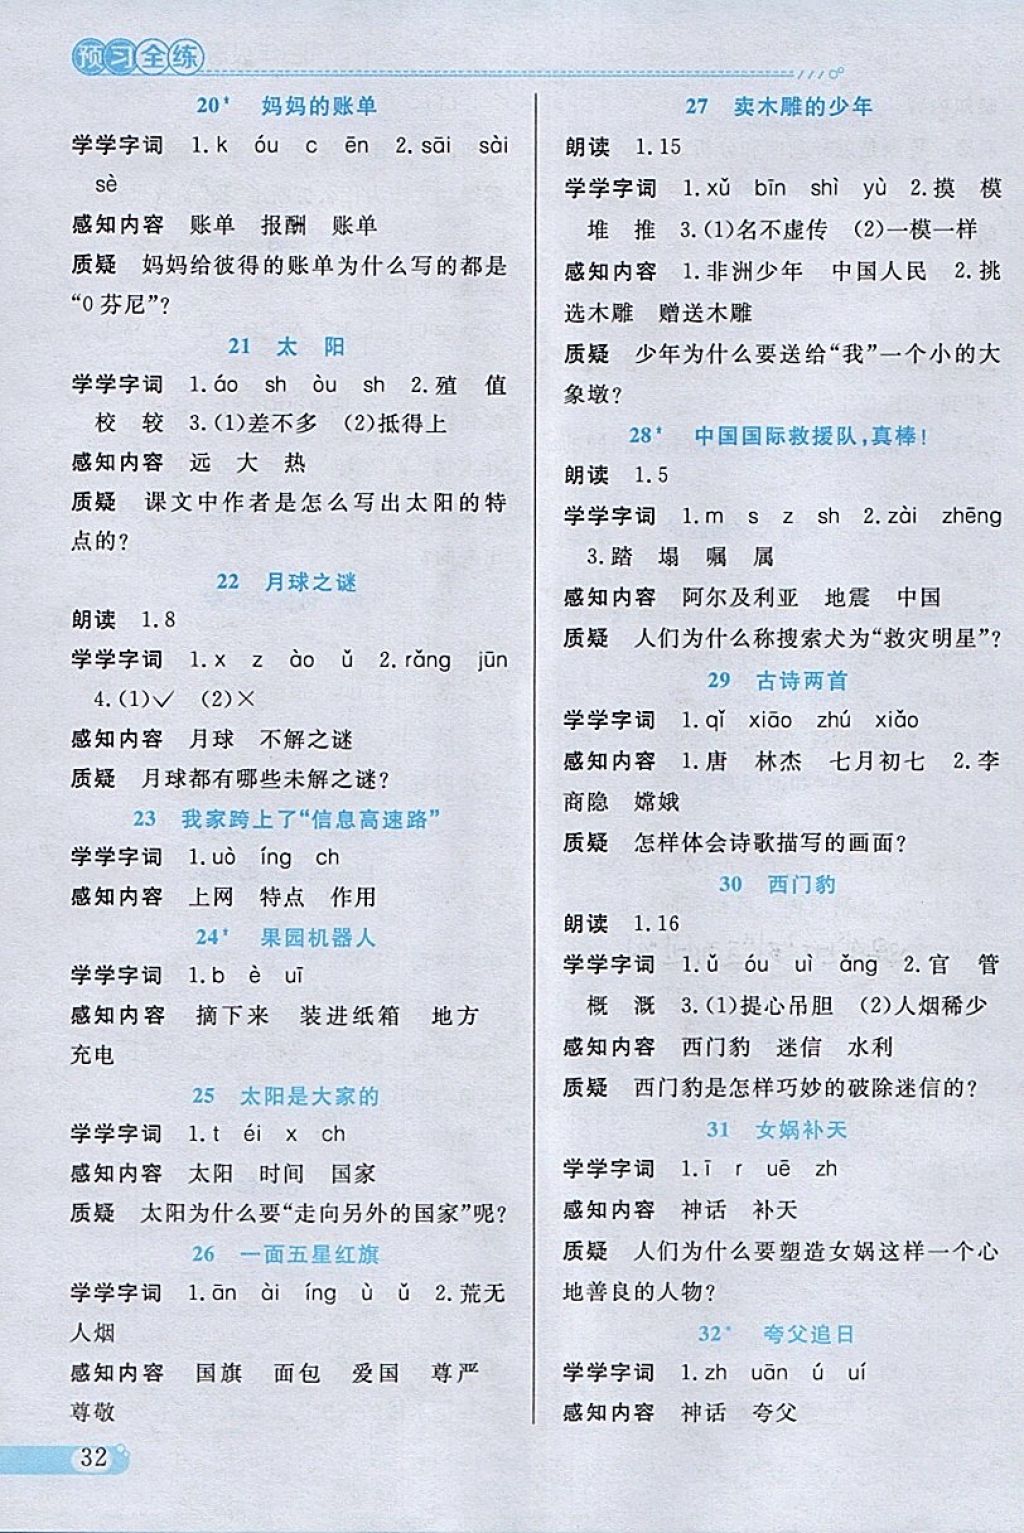 预习全练
20* 妈妈的账单
学学字词 1.k óu c ēn 2.sāi sài
sè
感知内容 账单 报酬 账单
质疑 妈妈给彼得的账单为什么写的都是
“0芬尼”?
21 太 阳
学学字词 1.áo sh òu sh 2.殖 值
校 较 3.(1)差不多 (2)抵得上
感知内容 远 大 热
质疑 课文中作者是怎么写出太阳的特
点的?
22 月球之谜
朗读 1.8
学学字词 1.x z ào ǔ 2.rǎng jūn
4.(1)✓ (2)×
感知内容 月球 不解之谜
质疑 月球都有哪些未解之谜?
23 我家跨上了“信息高速路”
学学字词 1.uò íng ch
感知内容 上网 特点 作用
24* 果园机器人
学学字词 1.b è uī
感知内容 摘下来 装进纸箱 地方
充电
25 太阳是大家的
学学字词 1.t éi x ch
感知内容 太阳 时间 国家
质疑 太阳为什么要“走向另外的国家”呢?
26 一面五星红旗
学学字词 1.ān ài íng ù ǔ 2.荒无
人烟
感知内容 国旗 面包 爱国 尊严
尊敬
27 卖木雕的少年
朗读 1.15
学学字词 1.xǔ bīn shì yù 2.摸 模
堆 推 3.(1)名不虚传 (2)一模一样
感知内容 1.非洲少年 中国人民 2.挑
选木雕 赠送木雕
质疑 少年为什么要送给“我”一个小的大
象墩?
28* 中国国际救援队,真棒!
朗读 1.5
学学字词 1.m s z sh 2.zài zhēng
3.踏 塌 嘱 属
感知内容 阿尔及利亚 地震 中国
质疑 人们为什么称搜索犬为“救灾明星”?
29 古诗两首
学学字词 1.qǐ xiāo zhú xiǎo
感知内容 1.唐 林杰 七月初七 2.李
商隐 嫦娥
质疑 怎样体会诗歌描写的画面?
30 西门豹
朗读 1.16
学学字词 1.ǔ óu uì ǎng 2.官 管
概 溉 3.(1)提心吊胆 (2)人烟稀少
感知内容 西门豹 迷信 水利
质疑 西门豹是怎样巧妙的破除迷信的?
31 女娲补天
学学字词 1.ī r uē zh
感知内容 神话 补天
质疑 人们为什么要塑造女娲这样一个心
地善良的人物?
32* 夸父追日
学学字词 1.zh uān ú uí
感知内容 神话 夸父
32